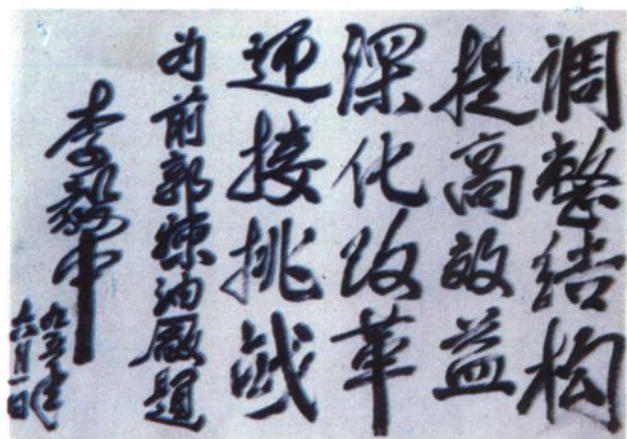 调整结构
提高效益
深化改革
迎接挑战
为前郭炼油厂题
李毅中
九五年
六月一日